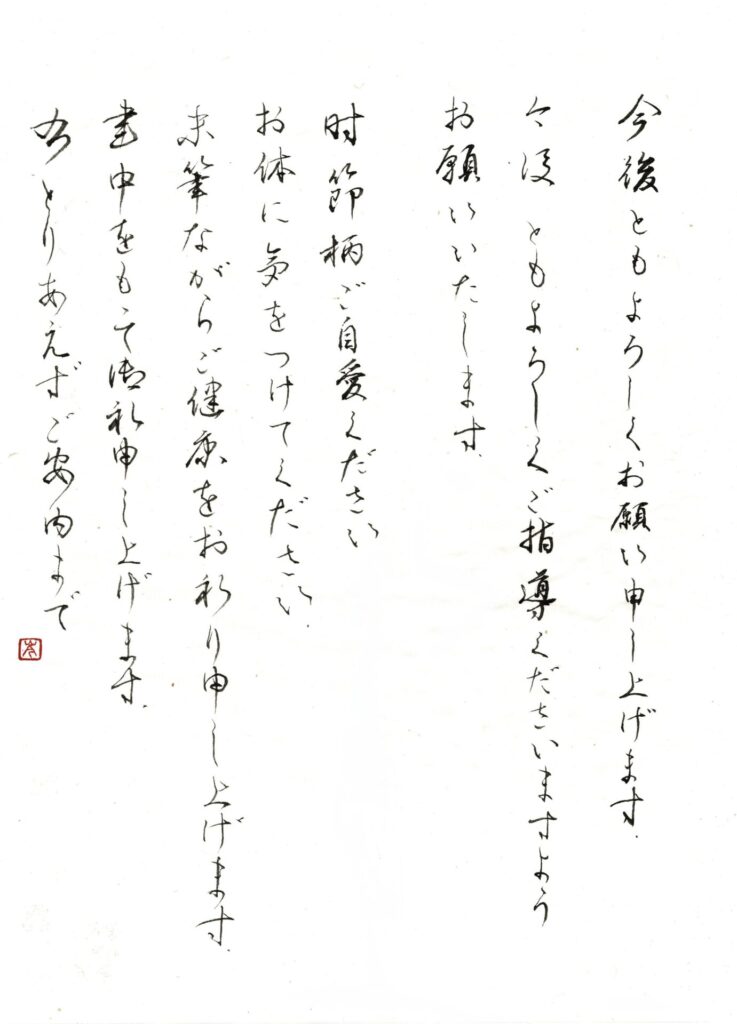 今後ともよろしくお願い申し上げます.
今後ともよろしくご指導くださいますよう
お願いいたします.
時節柄ご自愛ください
お体に気をつけてください.
末筆ながらご健康をお祈り申し上げます.
書中をもって御礼申し上げます.
右とりあえずご案内まで